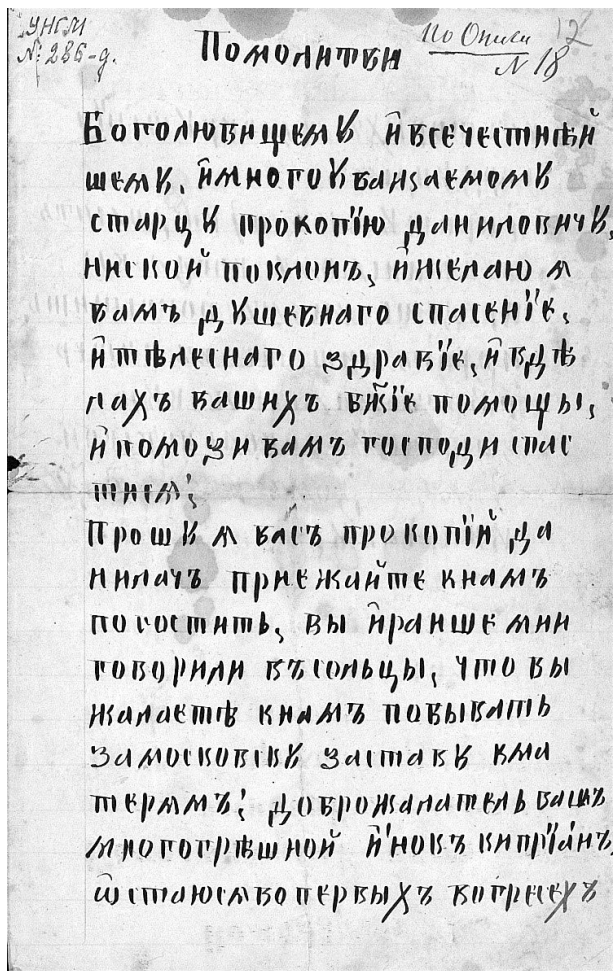 УНГМ
№ 286-д.
по Описи 12
N 18
Помолитвѣ
Боголюбищемꙋ и҆всечестнѣй
шемꙋ, и҆многоꙋважаемомꙋ
старцꙋ прокопїю даниловичꙋ,
ниской поклонъ, и҆желаю я
вамъ дꙋшевнаго спасенїе,
и҆тѣлеснаго здравїе, и҆вдѣ
лахъ вашихъ бж҃їе помощы,
и҆помози вамъ господи спас
тися;
Прошꙋ я васъ прокопїй да
нилачъ приежайте кнамъ
погостить, вы и҆ранше мни
говорили въсольцы, что вы
жалаетѣ кнамъ побывать
замосковскꙋ заставꙋ кма
терямъ; доброжалатель вашъ
многогрѣшной и҆нокъ кипрїанъ,
ѿстаюсявопервыхъ вогреехъ